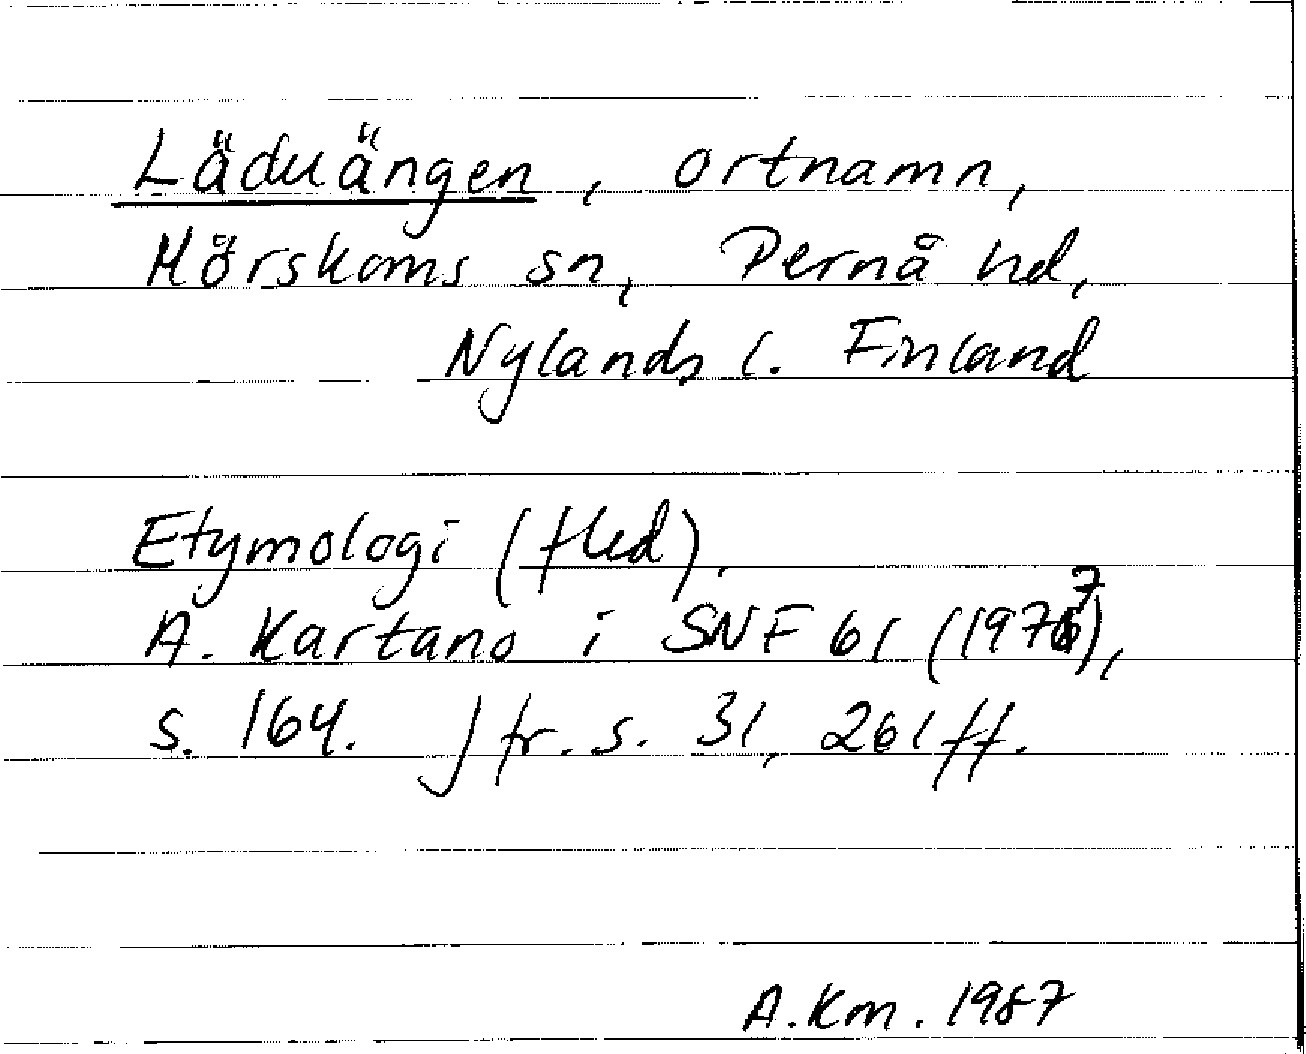 Läduängen, ortnamn,
Mörskoms sn, Pernå hd,
Nylands l. Finland
Etymologi (fled).
A. Kartano i SNF 61 (1977),
s. 164. Jfr. s. 31, 261 ff.
A. Km. 1987